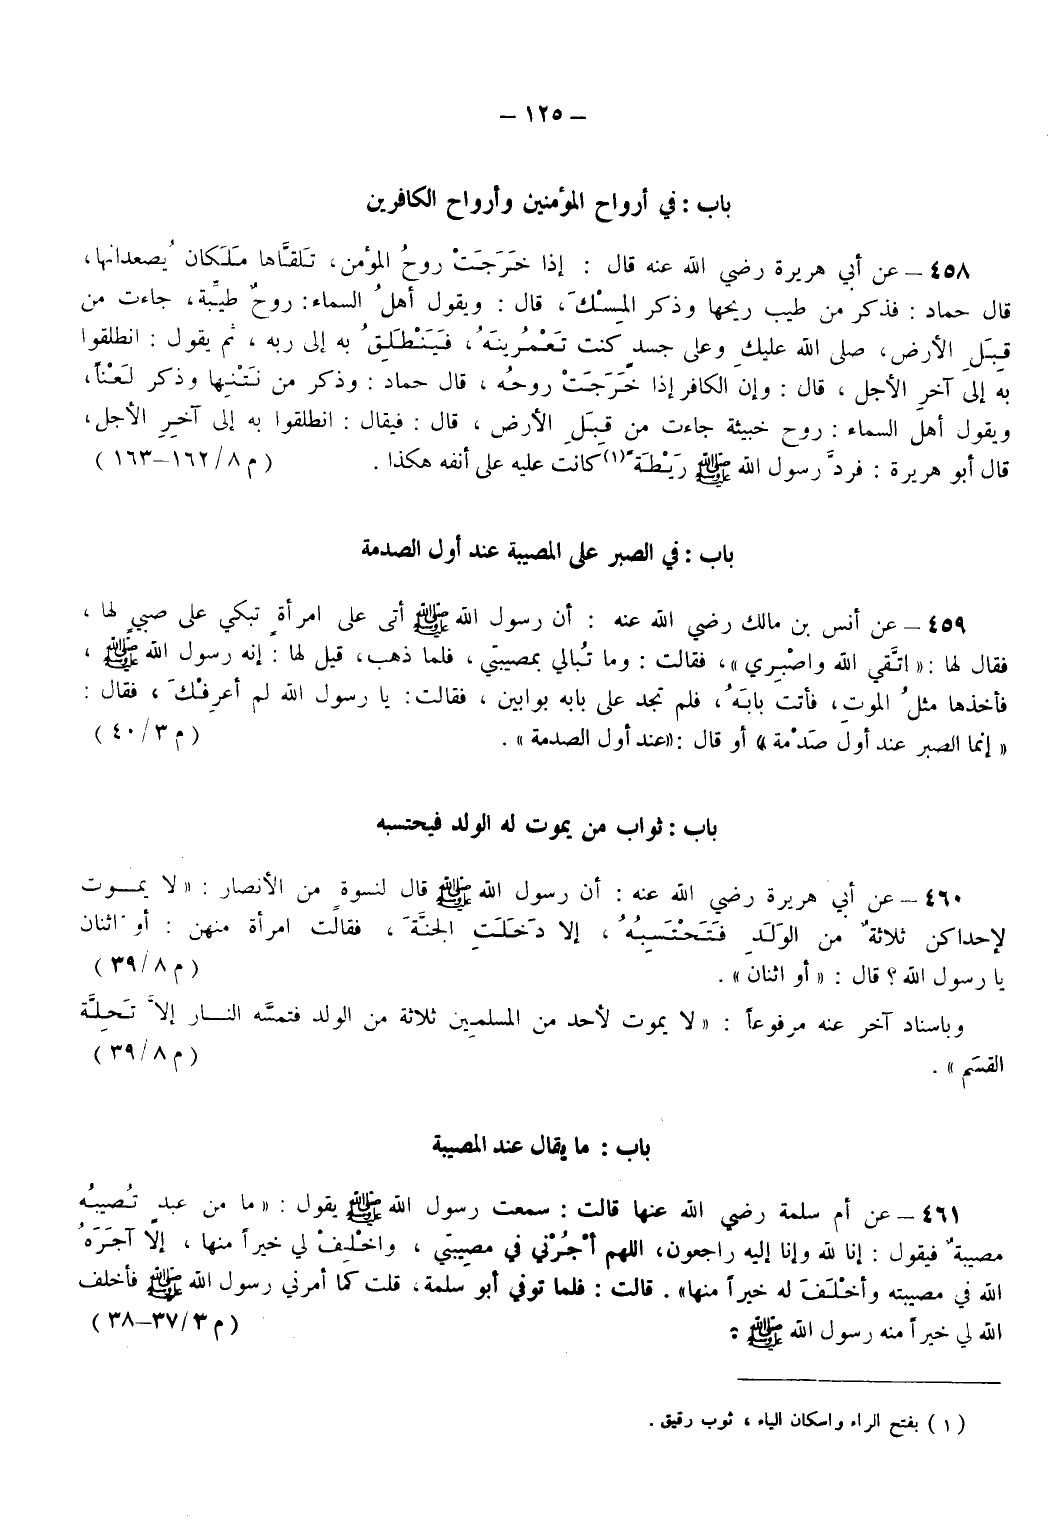 – ١٢٥ –
باب : في أرواح المؤمنين وأرواح الكافرين
٤٥٨ – عن أبي هريرة رضي الله عنه قال : إذا خَرَجَتْ روحُ المؤمن، تَلَقَّاها مَلَكان يُصعدانها،
قال حماد : فذكر من طيب ريحها وذكر المِسْكَ، قال : ويقول أهلُ السماء: روحٌ طيِّبة، جاءت من
قِبَلِ الأرض، صلى الله عليكِ وعلى جسدٍ كنت تَعْمُرينَهُ، فَيَنْطَلِقُ به إلى ربه ، ثم يقول : انطلقوا
به إلى آخرِ الأجل ، قال : وإن الكافر إذا خَرَجَتْ روحُه ، قال حماد : وذكر من نَتْنِها وذكر لَعْناً،
ويقول أهل السماء : روح خبيثة جاءت من قِبَلِ الأرض ، قال : فيقال : انطلقوا به إلى آخِرِ الأجل،
قال أبو هريرة : فردَّ رسول الله ﷺ رَيْطَةً(١) كانت عليه على أنفه هكذا . ( م ٨/ ١٦٢–١٦٣ )
باب : في الصبر على المصيبة عند أول الصدمة
٤٥٩ – عن أنس بن مالك رضي الله عنه : أن رسول الله ﷺ أتى على امرأةٍ تبكي على صبيٍ لها ،
فقال لها : « اتَّقي الله واصْبِري »، فقالت : وما تُبالي بمصيبتي ، فلما ذهب، قيل لها : إنه رسول الله ﷺ ،
فأخذها مثلُ الموتِ، فأتت بابَهُ، فلم تجد على بابه بوابين ، فقالت: يا رسول الله لم أعرفْكَ ، فقال :
« إنما الصبر عند أول صَدْمة » أو قال : «عند أول الصدمة » . ( م ٣/ ٤٠ )
باب : ثواب من يموت له الولد فيحتسبه
٤٦٠ – عن أبي هريرة رضي الله عنه : أن رسول الله ﷺ قال لنسوةٍ من الأنصار : « لا يمــوت
لإحداكن ثلاثةٌ من الوَلَدِ فَتَحْتَسِبُهُ ، إلا دَخَلَتِ الجنَّةَ ، فقالت امرأة منهن : أو اثنان
يا رسول الله ؟ قال : « أو اثنان » . ( م ٨/ ٣٩ )
وباسناد آخر عنه مرفوعاً : « لا يموت لأحد من المسلمين ثلاثة من الولد فتمسَّه النــار إلاَّ تَحِلَّةَ
القسَم » . ( م ٨/ ٣٩ )
باب : ما يقال عند المصيبة
٤٦١ – عن أم سلمة رضي الله عنها قالت : سمعت رسول الله ﷺ يقول : « ما من عبدٍ تُصيبُه
مصيبةٌ فيقول : إنا لله وإنا إليه راجعون، اللهم أْجُرْني في مصيبتي ، واخْلِفْ لي خيراً منها ، إلّا آجَرَهُ
الله في مصيبته وأخْلَفَ له خيراً منها» . قالت : فلما توفي أبو سلمة، قلت كما أمرني رسول الله ﷺ فأخلف
الله لي خيراً منه رسول الله ﷺ . ( م ٣/ ٣٧–٣٨ )
( ١ ) بفتح الراء واسكان الياء ، ثوب رقيق .